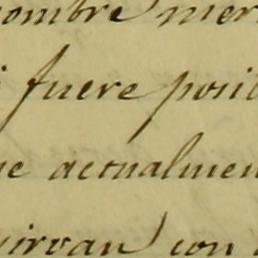 ombre mer
fuere posi
e actualmen
sirvan con